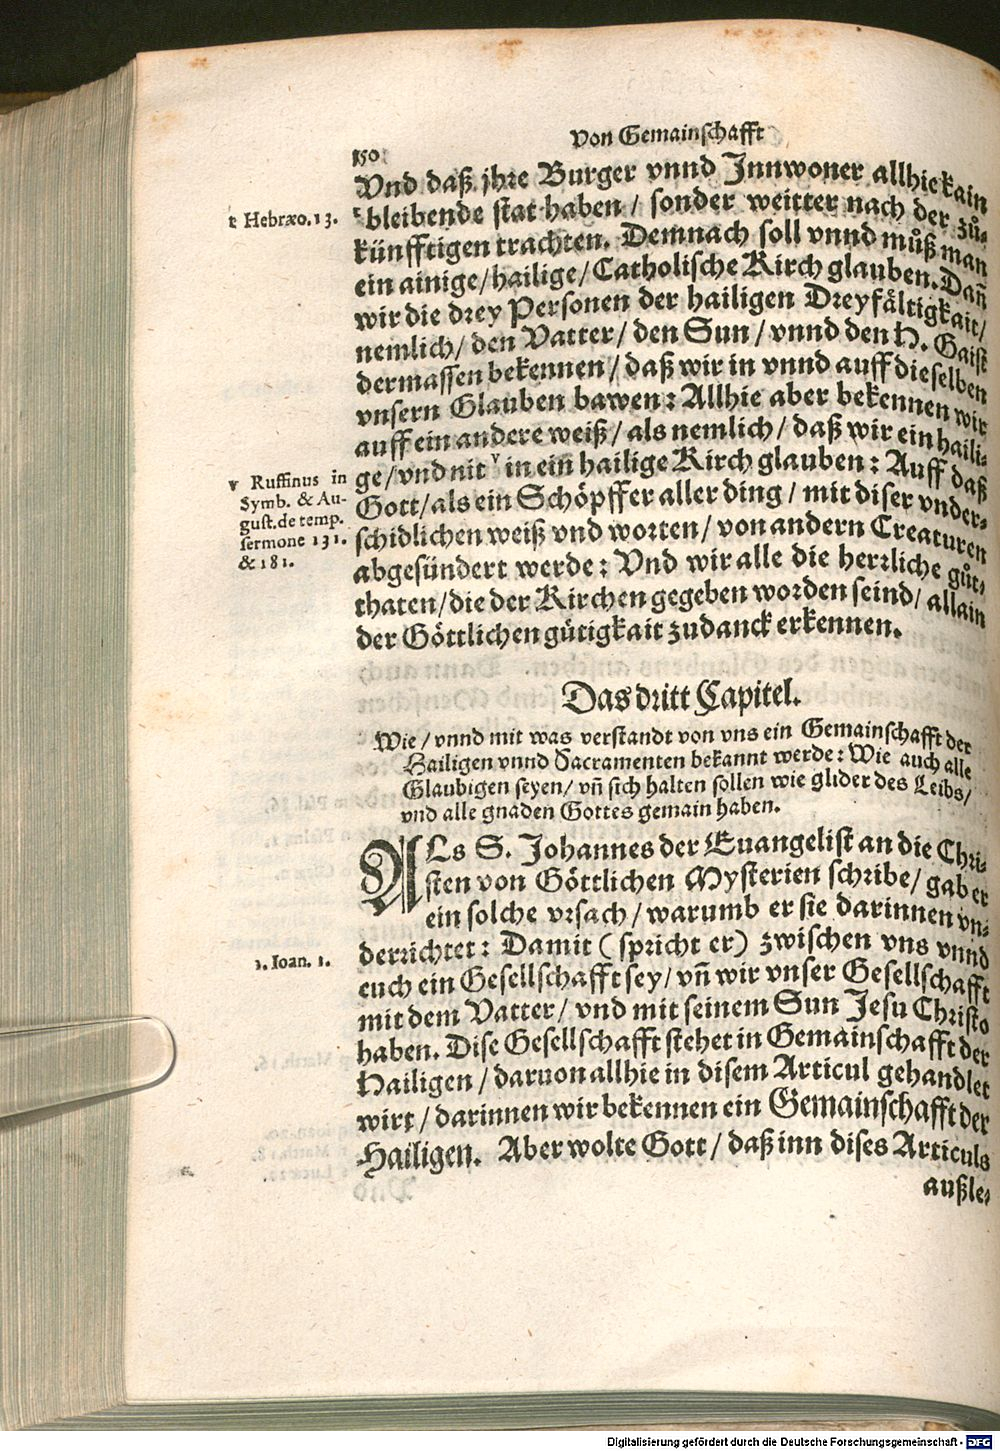 Von Gemainschafft
150
Vnd daß jhre Burger vnnd Innwoner allhie kain
t Hebræo. 13.
t bleibende stat haben / sonder weitter nach der zů-
künfftigen trachten. Demnach soll vnnd můß man
ein ainige / hailige / Catholische Kirch glauben. Dañ
wir die drey Personen der hailigen Dreyfältigkait /
nemlich / den Vatter / den Sun / vnnd den H. Gaist
dermassen bekennen / daß wir in vnnd auff dieselben
vnsern Glauben bawen: Allhie aber bekennen wir
auff ein andere weiß / als nemlich / daß wir ein haili-
ge / vnd nit v in ein hailige Kirch glauben: Auff daß
v Ruffinus in
Symb. & Au-
gust. de temp.
sermone 131.
& 181.
Gott / als ein Schöpffer aller ding / mit diser vnder-
schidlichen weiß vnd worten / von andern Creaturen
abgesündert werde: Vnd wir alle die herrliche gůt-
thaten / die der Kirchen gegeben worden seind / allain
der Göttlichen gütigkait zudanck erkennen.
Das dritt Capitel.
Wie / vnnd mit was verstandt von vns ein Gemainschafft der
Hailigen vnnd Sacramenten bekannt werde: Wie auch alle
Glaubigen seyen / vñ sich halten sollen wie glider des Leibs /
vnd alle gnaden Gottes gemain haben.
ALs S. Johannes der Euangelist an die Chri-
sten von Göttlichen Mysterien schribe / gab er
ein solche vrsach / warumb er sie darinnen vn-
derrichtet: Damit ( spricht er ) zwischen vns vnnd
1. Ioan. 1.
euch ein Gesellschafft sey / vñ wir vnser Gesellschafft
mit dem Vatter / vnd mit seinem Sun Jesu Christo
haben. Dise Gesellschafft stehet in Gemainschafft der
Hailigen / daruon allhie in disem Articul gehandlet
wirt / darinnen wir bekennen ein Gemainschafft der
Hailigen. Aber wolte Gott / daß inn dises Articuls
außle-
Digitalisierung gefördert durch die Deutsche Forschungsgemeinschaft - DFG